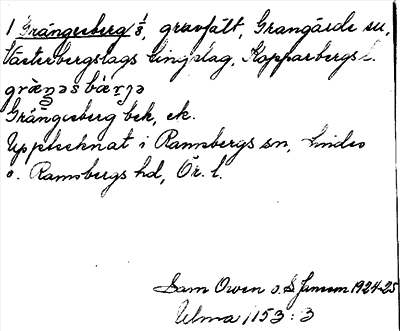 1 Grängesberg 1/8, gruvfält, Grangärde sn,
Västerbergslags tingslag, Kopparbergs l.
Grängesberg bek, ek.
Upptecknat i Ramsbergs sn, Lindes
o. Ramsbergs hd, Ör. l.
Sam Owen o. S 1924-25
Ulma 1153:3